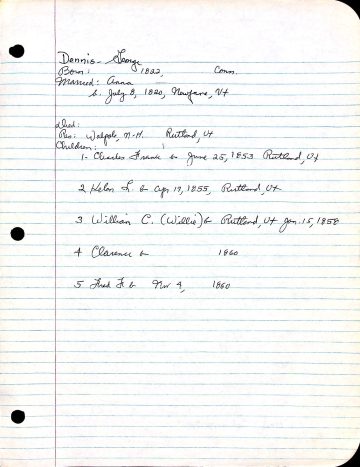 Dennis - George
Born: 1822, Conn.
Married: Anna
b. July 8, 1820, Newfane, Vt
died:
Res: Walpole, N-H. Rutland, Vt
Children:
1- Charles Frank b June 25, 1853 Rutland, Vt
2 Helen L. b apr 19, 1855, Rutland, Vt
3 William C. (Willie) b Rutland, Vt Jan. 15, 1858
4 Clarence b 1860
5 Fred F. b Nov 4, 1860